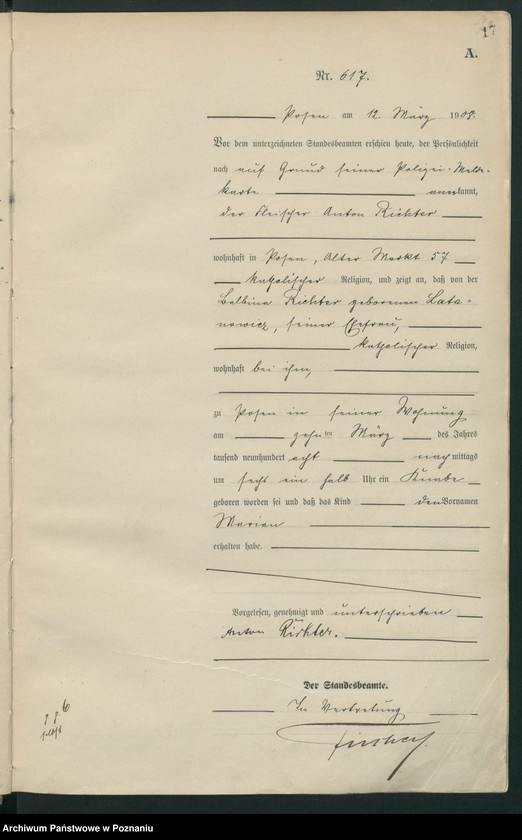 17
A.
Nr. 617.
Posen am 12. März 1908.
Vor dem unterzeichneten Standesbeamten erschien heute, der Persönlichkeit
nach auf Grund seiner Polizei-Melde-
karte anerkannt,
der Fleischer Anton Richter
wohnhaft in Posen, Alter Markt 57
katholischer Religion, und zeigt an, daß von der
Balbina Richter geborenen Lata-
nowicz, seiner Ehefrau,
katholischer Religion,
wohnhaft bei ihm,
zu Posen in seiner Wohnung
am zehnten März des Jahres
tausend neunhundert acht nachmittags
um sechs ein halb Uhr ein Knabe
geboren worden sei und daß das Kind den Vornamen
Marian
erhalten habe.
Vorgelesen, genehmigt und unterschrieben
Anton Richter.
Der Standesbeamte.
In Vertretung
Archiwum Państwowe w Poznaniu